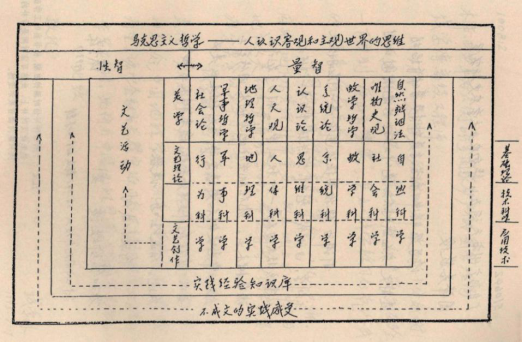 马克思主义哲学 —— 人认识客观和主观世界的思维
性智 ←→ 量智
文艺活动
美学
文艺理论
文艺创作
社会论
行为科学
军事哲学
军事科学
地理哲学
地理科学
人天观
人体科学
认识论
思维科学
系统论
系统科学
数学哲学
数学科学
唯物史观
社会科学
自然辩证法
自然科学
基础理论
技术科学
应用技术
实践经验知识库
不成文的实践感受